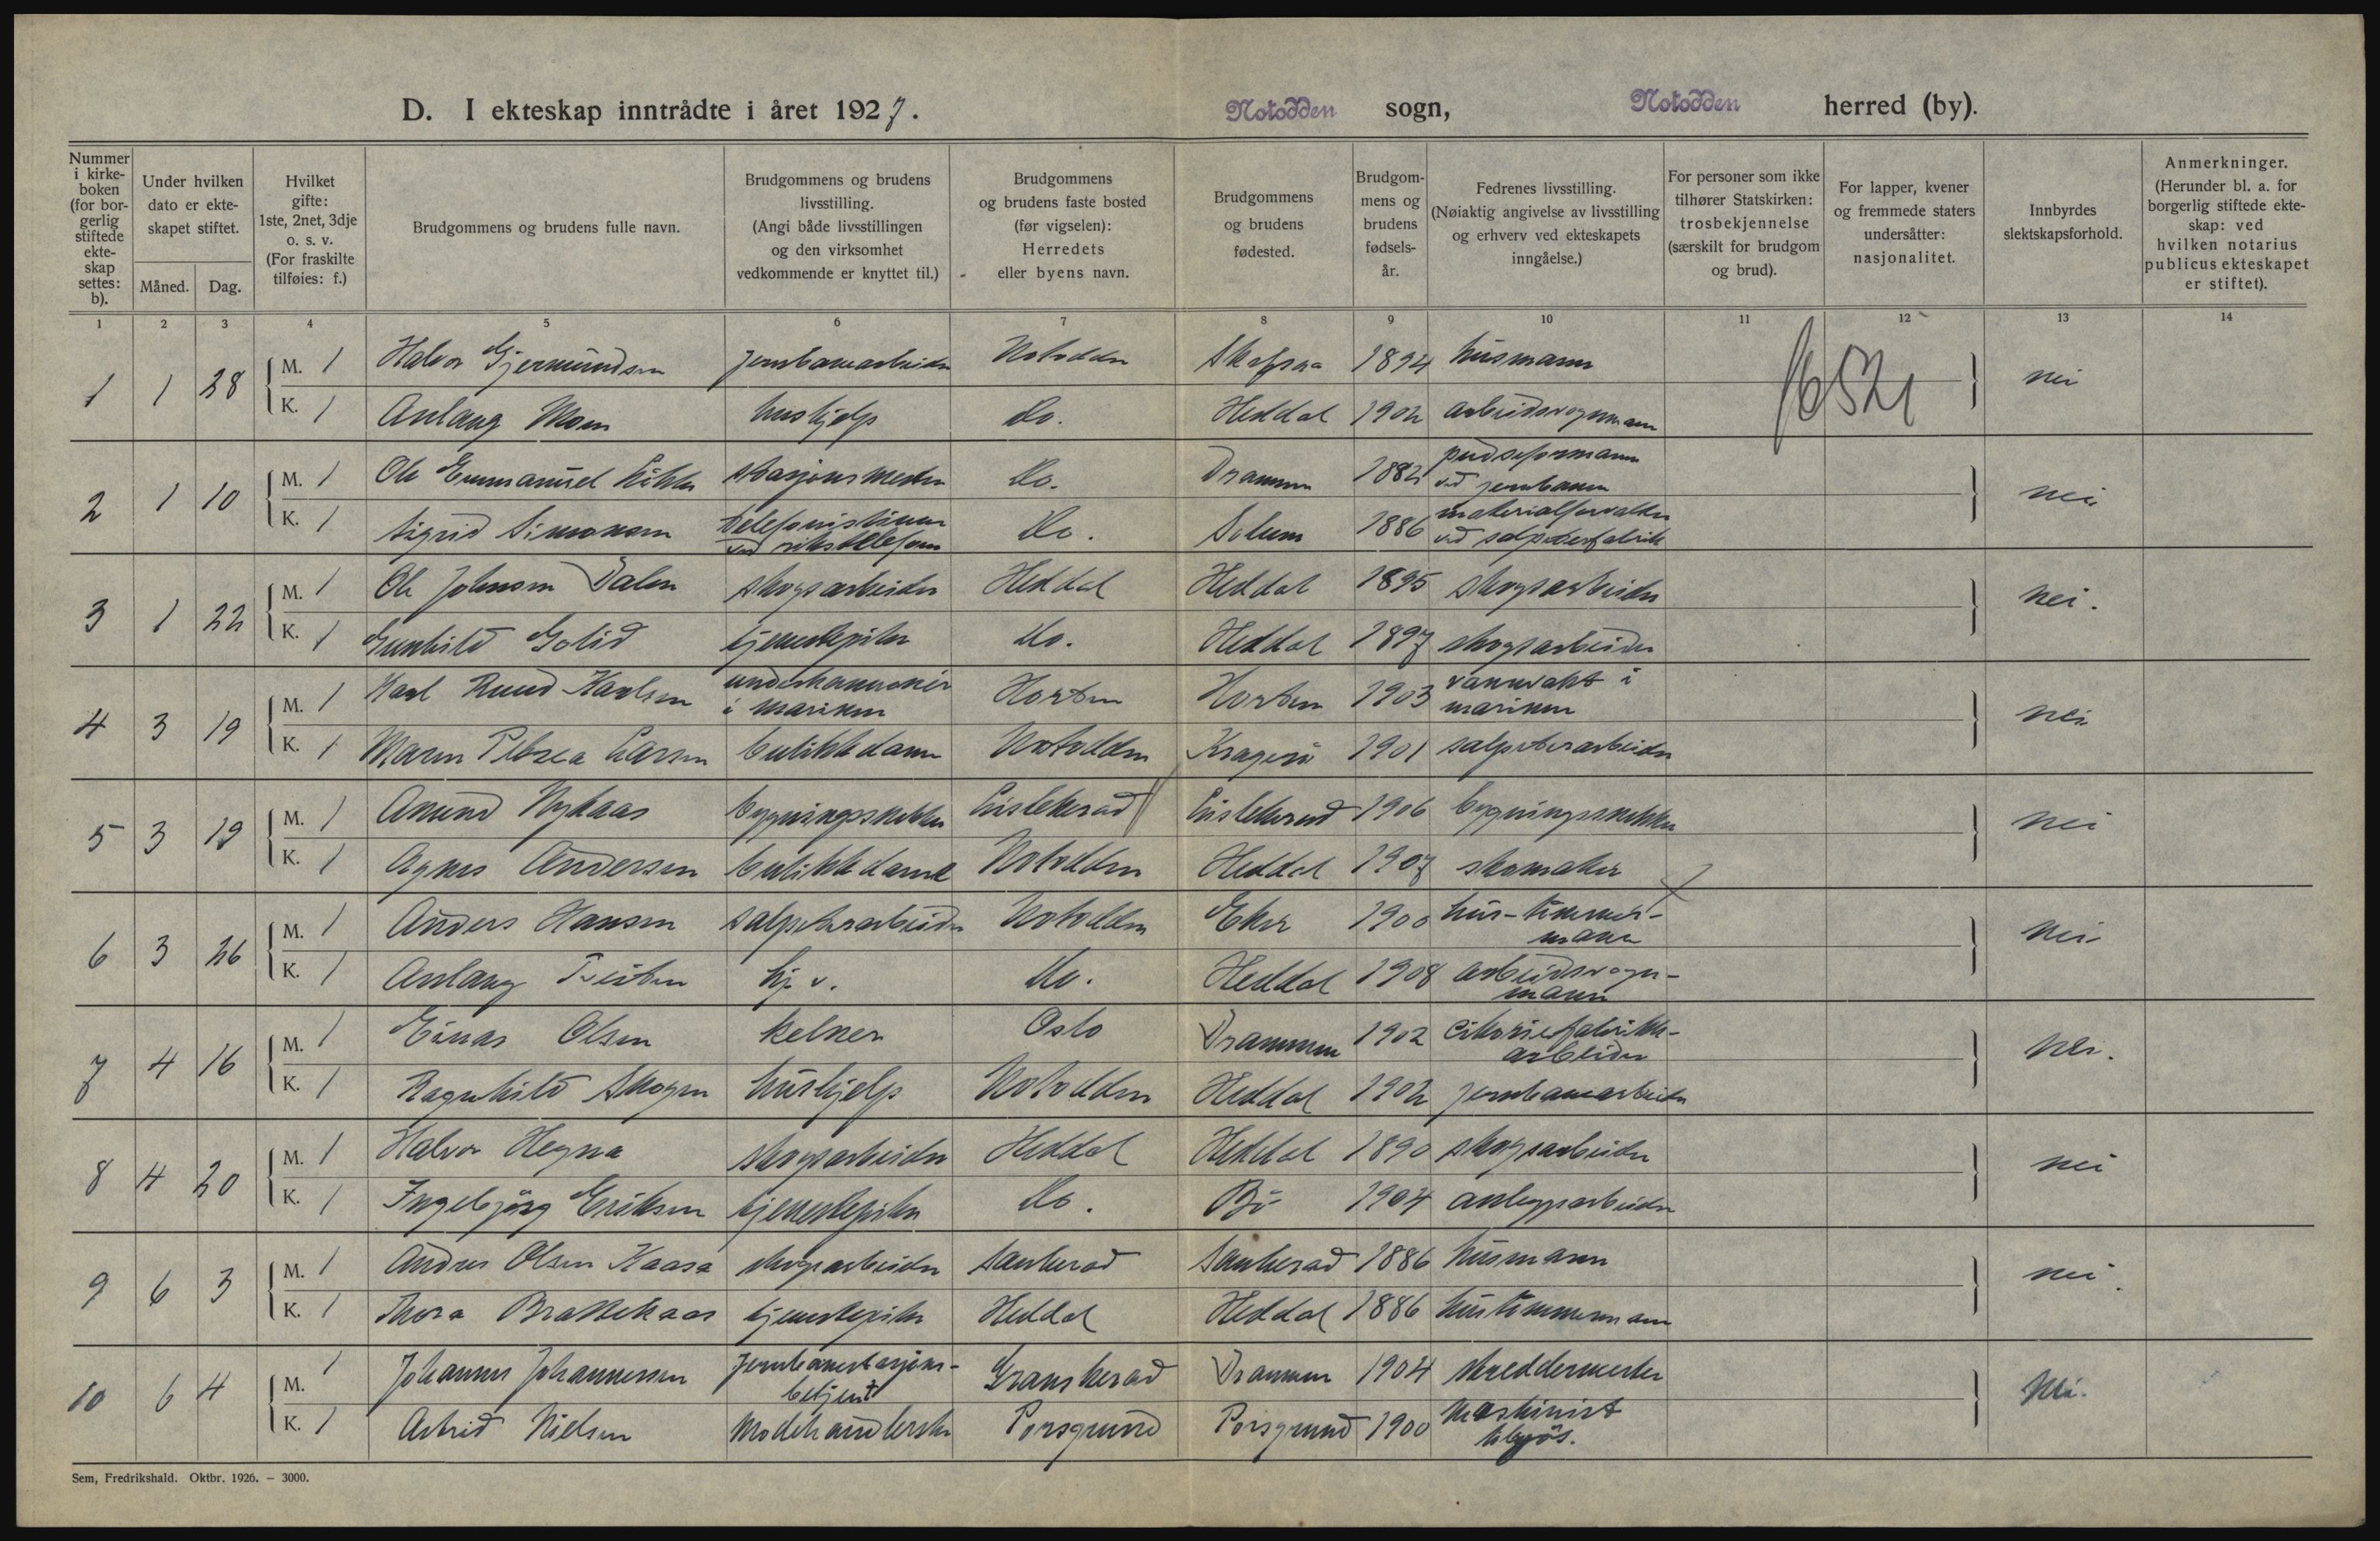 D. I ekteskap inntrådte i året 1927. Notodden sogn, Notodden herred (by).
Nummer i kirkeboken (for borgerlig stiftede ekteskap settes: b).
Under hvilken dato er ekteskapet stiftet.
Måned. Dag.
Hvilket gifte: 1ste, 2net, 3dje o. s. v. (For fraskilte tilføies: f.)
Brudgommens og brudens fulle navn.
Brudgommens og brudens livsstilling. (Angi både livsstillingen og den virksomhet vedkommende er knyttet til.)
Brudgommens og brudens faste bosted (før vigselen): Herredets eller byens navn.
Brudgommens og brudens fødested.
Brudgommens og brudens fødselsår.
Fedrenes livsstilling. (Nøiaktig angivelse av livsstilling og erhverv ved ekteskapets inngåelse.)
For personer som ikke tilhører Statskirken: trosbekjennelse (særskilt for brudgom og brud).
For lapper, kvener og fremmede staters undersåtter: nasjonalitet.
Innbyrdes slektskapsforhold.
Anmerkninger. (Herunder bl. a. for borgerlig stiftede ekteskap: ved hvilken notarius publicus ekteskapet er stiftet).
1 2 3 4 5 6 7 8 9 10 11 12 13 14
1 1 28 M. 1 Halvor Gjermundsen jernbanearbeider Notodden Skafsaa 1894 husmann nei
K. 1 Aslaug Moen hushjelp do. Heddal 1902 arbeidsvognmann
2 1 10 M. 1 Ole Emmanuel stasjonsmester do. Drammen 1882 pudseformann ved jernbanen nei
K. 1 Sigrid Simonsen telefonistinne ved rikstelefonen do. Solum 1886 materialforvalter ved salpeterfabrik
3 1 22 M. 1 Ole Johnsen Dalen skogsarbeider Heddal Heddal 1895 skogsarbeider nei.
K. 1 Gunhild Golid tjenestepike do. Heddal 1897 skogsarbeider
4 3 19 M. 1 Karl Ruud Karlsen underkanoner i marinen Horten Horten 1903 vannvakt i marinen nei
K. 1 Maren Larsen butikkdame Notodden Kragerø 1901 salpeterarbeider
5 3 19 M. 1 Amund Nykaas bygningssnekker Lisleherad Lisleherad 1906 bygningssnekker nei
K. 1 Agnes Andersen butikkdame Notodden Heddal 1907 skomaker
6 3 26 M. 1 Anders Hansen salpeterarbeider Notodden Eker 1900 hus-tømmermann nei
K. 1 Aslaug Tveiten hj. v. do. Heddal 1908 arbeidsvognmann
7 4 16 M. 1 Einar Olsen kelner Oslo Drammen 1902 cikoriefabrikkarbeider nei.
K. 1 Ragnhild Skogen hushjelp Notodden Heddal 1902 jernbanearbeider
8 4 20 M. 1 Halvor Hegna skogsarbeider Heddal Heddal 1890 skogsarbeider nei
K. 1 Ingebjørg Eriksen tjenestepike do. Bø 1904 anleggsarbeider
9 6 3 M. 1 Andres Olsen Kaasa skogsarbeider Sauherad Sauherad 1886 husmann nei
K. 1 Thora Brattekaas tjenestepike Heddal Heddal 1886 hustømmermann
10 6 4 M. 1 Johannes Johannessen jernbanestasjonsbetjent Gransherad Drammen 1904 skreddermester nei.
K. 1 Astrid Nielsen modehandlerske Porsgrund Porsgrund 1900 maskinist tilsjøs.
Sem, Fredrikshald. Oktbr. 1926. – 3000.